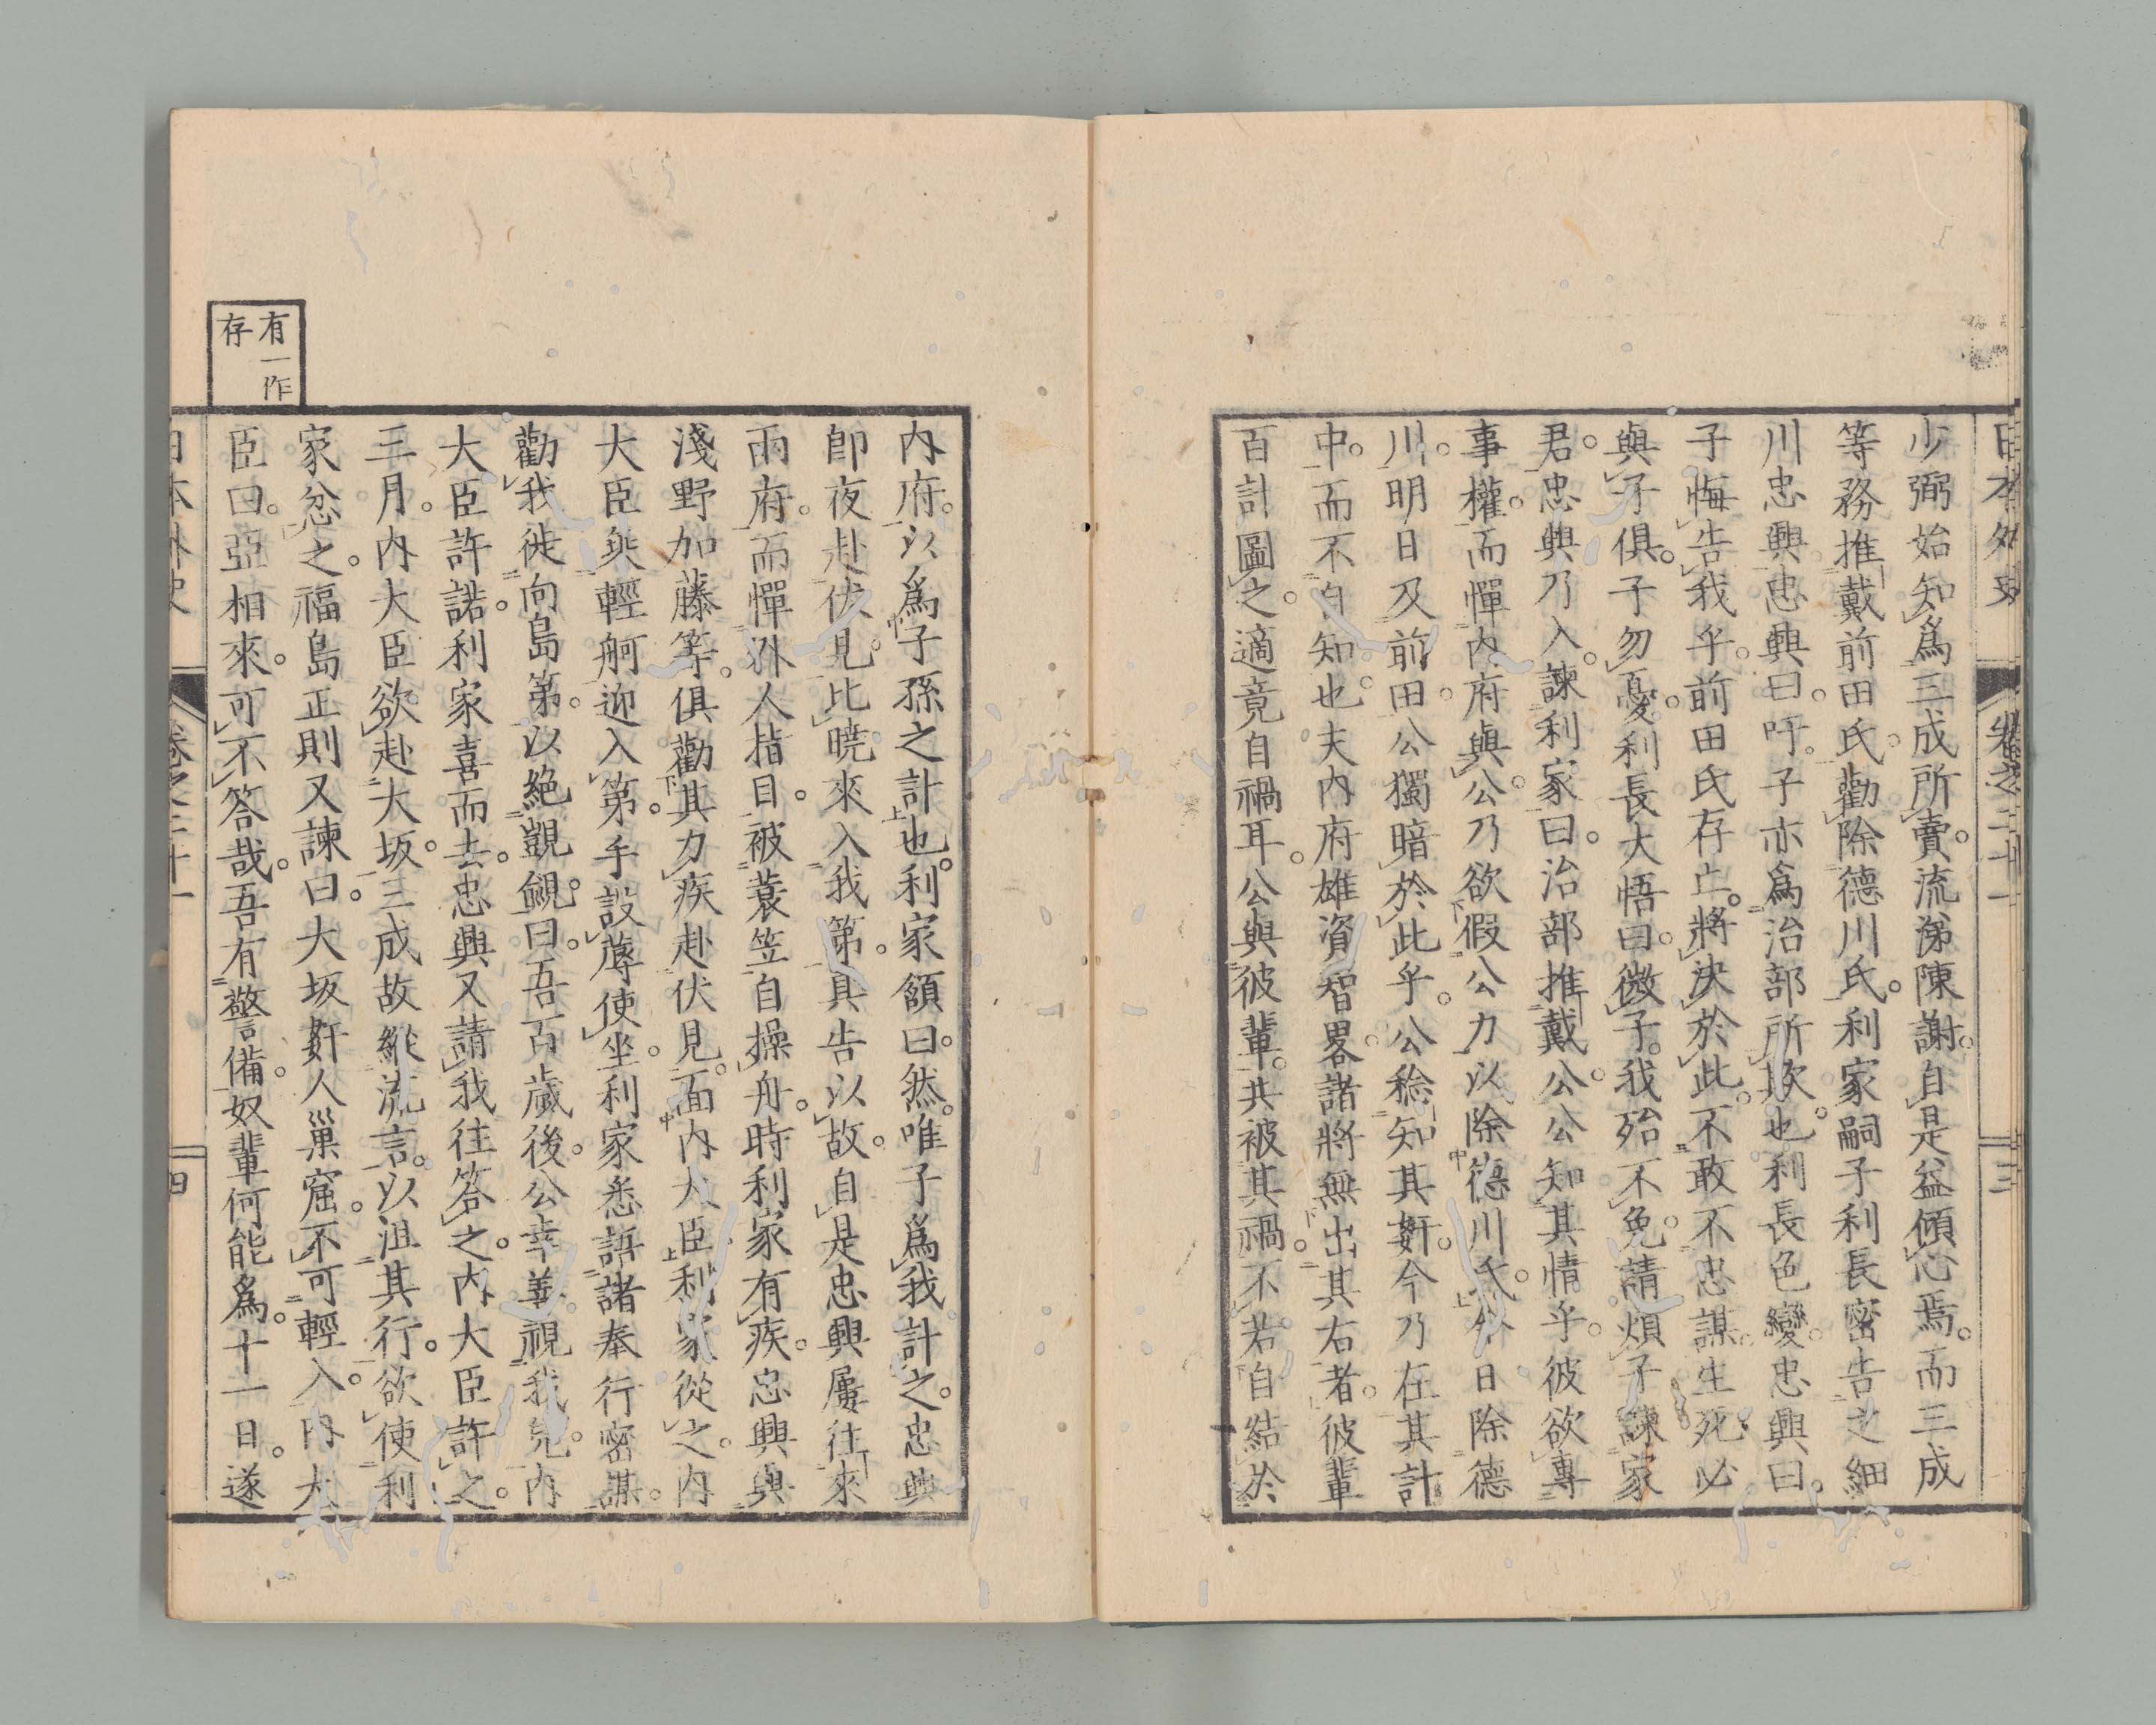 日本外史 卷之二十一 三
少弼始知爲三成所賣。流涕陳謝。自是益傾心焉。而三成
等務推戴前田氏。勸除德川氏。利家嗣子利長密告之細
川忠興。忠興曰。吁。子亦爲治部所欺也。利長色變。忠興曰。
子悔告我乎。前田氏存亡。將決於此。不敢不忠謀。生死必
與子俱。子勿憂。利長大悟曰。微子。我殆不免。請煩子諫家
君。忠興乃入。諫利家曰。治部推戴公。公知其情乎。彼欲專
事權。而憚內府與公。乃欲假公力以除德川氏。今日除德
川。明日及前田。公獨暗於此乎。公稔知其姧。今乃在其計
中。而不自知也。夫內府雄資智畧。諸將無出其右者。彼輩
百計圖之。適竟自禍耳。公與彼輩。共被其禍。不若自結於
內府。以爲子孫之計也。利家頷曰。然。唯子爲我計之。忠興
卽夜赴伏見。比曉來入我第。具告以故。自是忠興屢往來
兩府。而憚外人指目。被蓑笠自操舟。時利家有疾。忠興與
淺野加藤等。俱勸其力疾赴伏見。面內大臣。利家從之。內
大臣與輕舸迎入第。手設蓐使坐。利家悉語諸奉行密謀。
勸我徙向島第。以絕覬覦。曰。吾百歲後。公幸善視我兒。內
大臣許諾。利家喜而去。忠興又請我往答之。內大臣許之。
三月。內大臣欲赴大坂。三成故縱流言。以沮其行。欲使利
家忿之。福島正則又諫曰。大坂姧人巢窟。不可輕入。內大
臣曰。亞相來。可不答哉。吾有警備。奴輩何能爲。十一日。遂
有一作
存
日本外史 卷之二十一 四